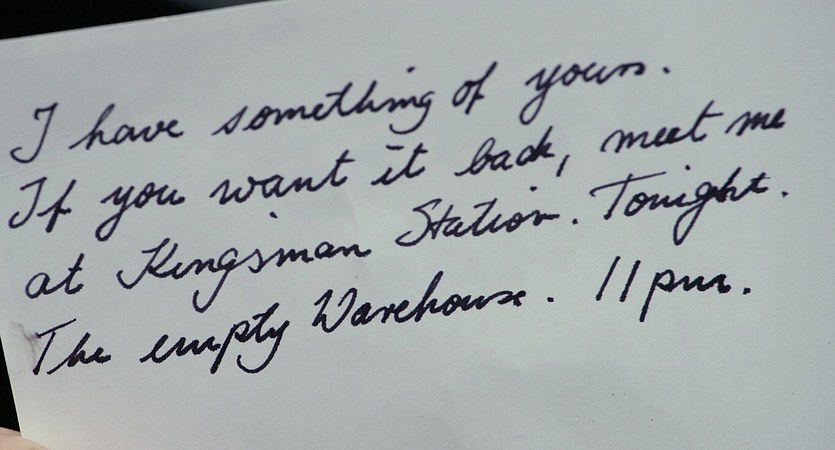 I have something of yours.
If you want it back, meet me
at Kingsman Station. Tonight.
The empty Warehouse. 11pm.